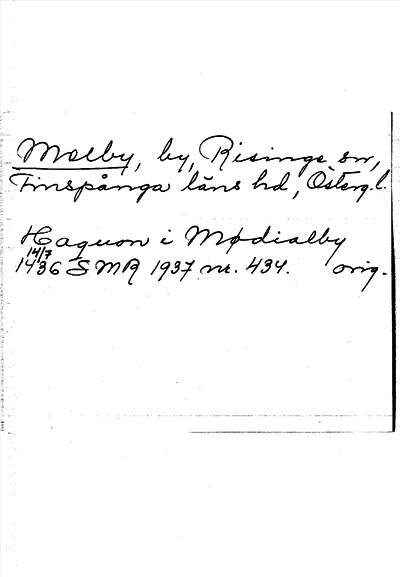 Mælby, by, Risinge sn,
Finspånga läns hd, Österg. l.
Haquon i Mødialby
14/7
1436 SMR 1937 nr. 434. orig.